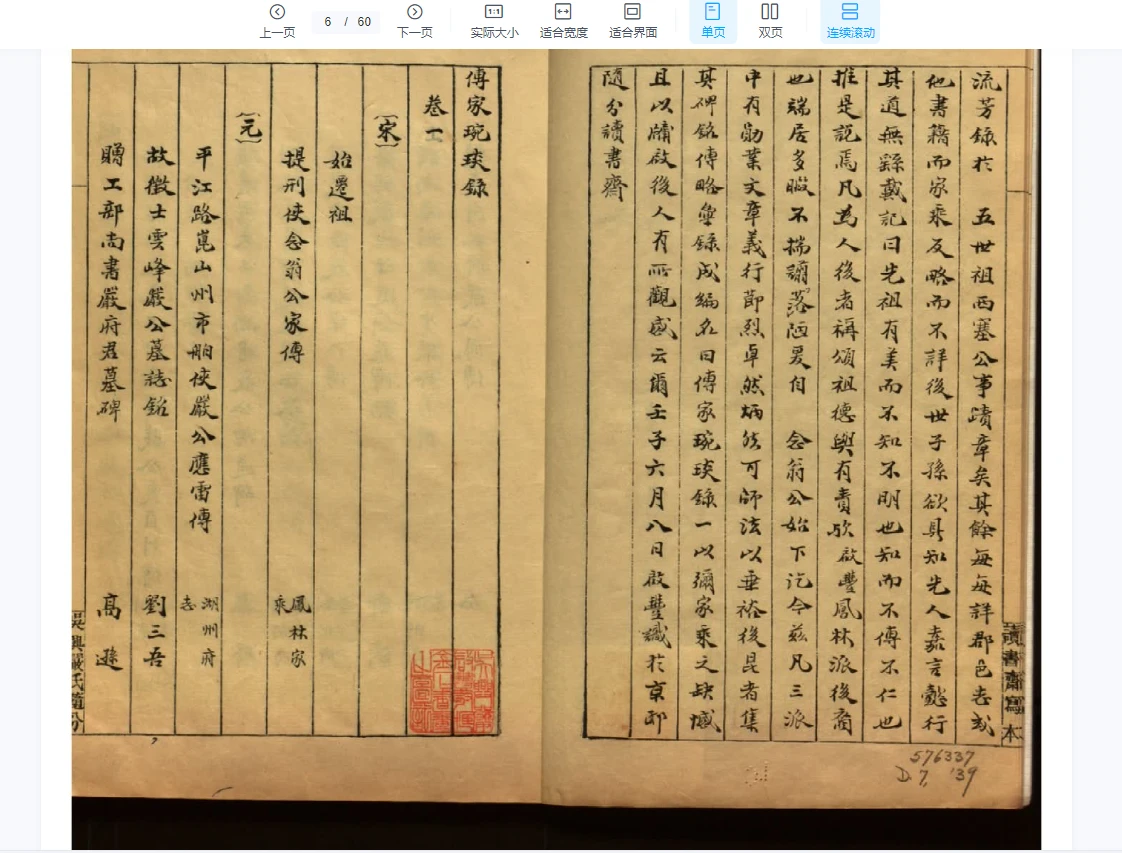 上一页
6 / 60
下一页
1:1
实际大小
适合宽度
适合界面
单页
双页
连续滚动
流芳錄於 五世祖西塞公事蹟章矣其餘每每詳郡邑志或
他書籍而家乘反略而不詳後世子孫欲具知先人嘉言懿行
其道無繇戴記曰先祖有美而不知不明也知而不傳不仁也
推是説焉凡為人後者稱頌祖德與有責欤啟豐鳳林派後裔
也端居多暇不揣譾落陋爰自 念翁公始下迄今茲凡三派
中有勛業文章義行節烈卓然炳然可師法以垂裕後昆者集
其碑銘傳略彙錄成編名曰傳家琬琰錄一以彌家乘之缺憾
且以牖啟後人有所觀感云爾壬子六月八日啟豐識於京邸
隨分讀書齋
讀書齋寫本
576337
D. 7, '39
傳家琬琰錄
卷一
〔宋〕
始遷祖
提刑使念翁公家傳 鳳林家乘
〔元〕
平江路崑山州市舶使嚴公應雷傳 湖州府志
故徵士雲峰嚴公墓誌銘 劉三吾
贈工部尚書嚴府君墓碑 高遜
吳興嚴氏隨分